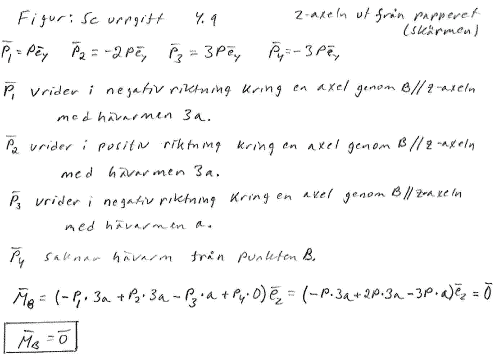 Figur: Se uppgift 4.9 z-axeln ut från papperet
(skärmen)
P̄₁ = Pēy P̄₂ = -2Pēy P̄₃ = 3Pēy P̄₄ = -3Pēy
P̄₁ vrider i negativ riktning kring en axel genom B//z-axeln
med hävarmen 3a.
P̄₂ vrider i positiv riktning kring en axel genom B//z-axeln
med hävarmen 3a.
P̄₃ vrider i negativ riktning kring en axel genom B//z-axeln
med hävarmen a.
P̄₄ saknar hävarm från punkten B.
M̄_B = (-P₁·3a + P₂·3a - P₃·a + P₄·0)ē_z = (-P·3a + 2P·3a - 3P·a)ē_z = 0̄
M̄_B = 0̄